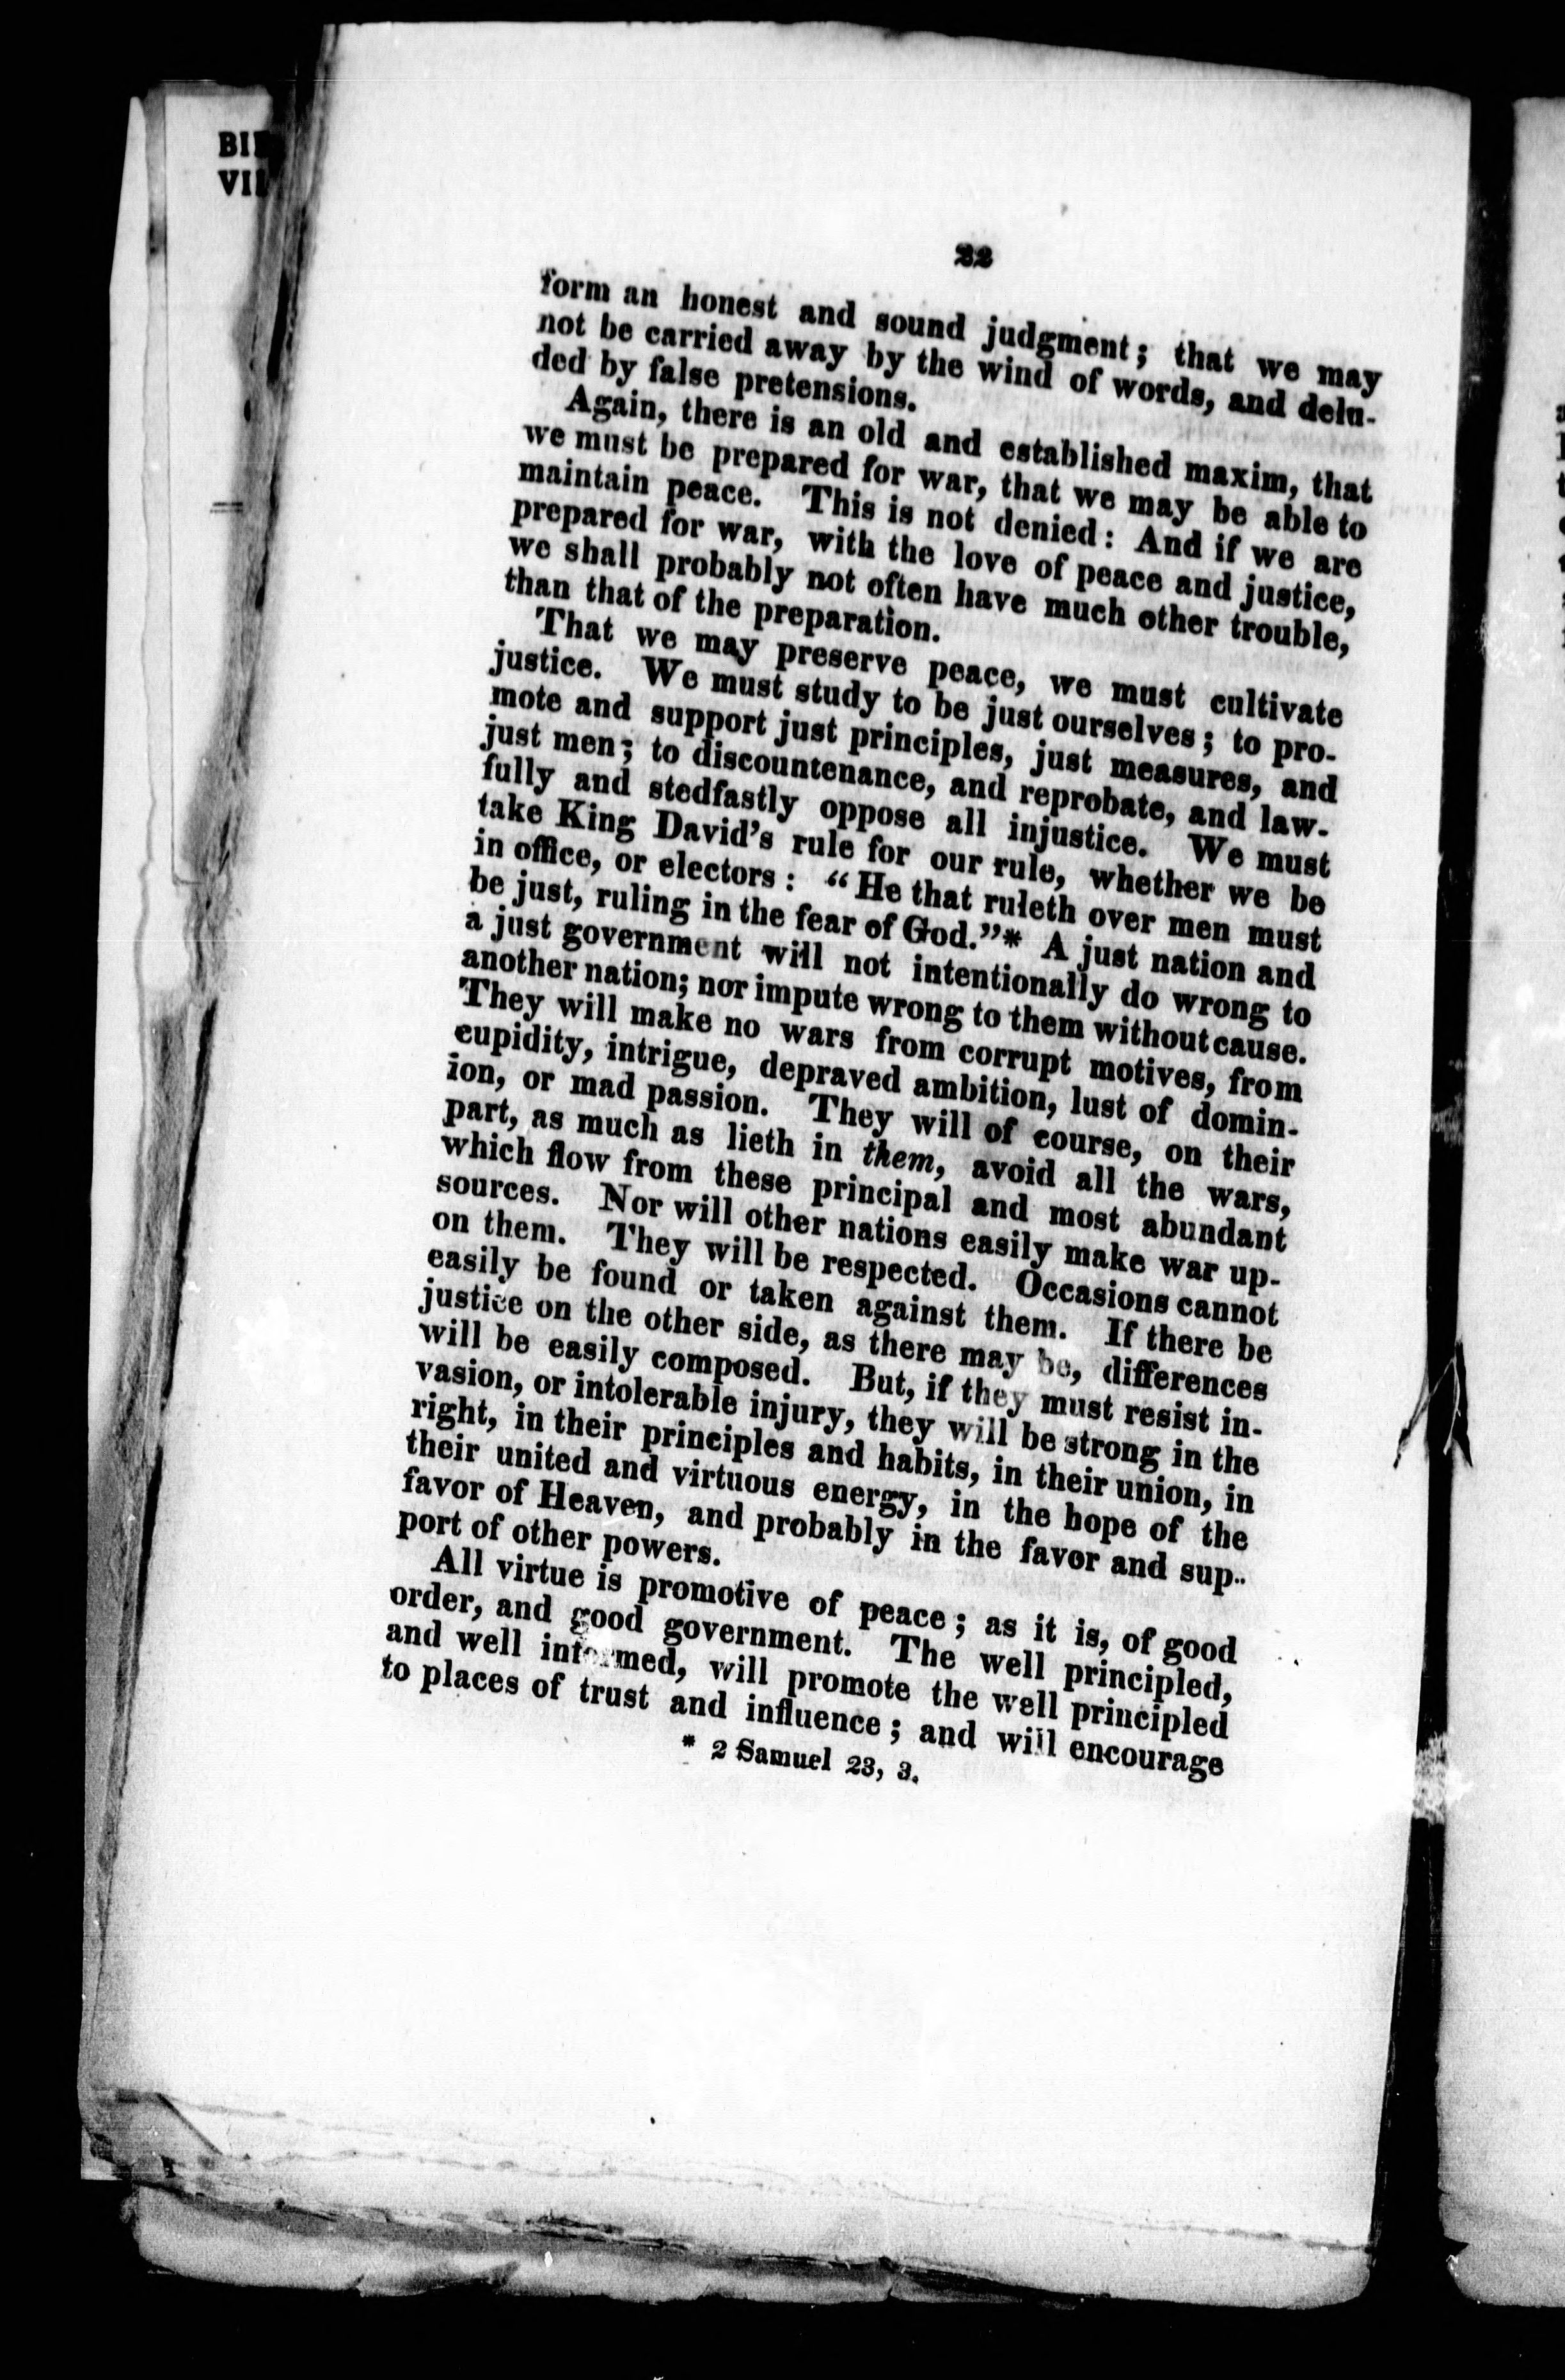 BI
VI
22
form an honest and sound judgment; that we may
not be carried away by the wind of words, and delu-
ded by false pretensions.
Again, there is an old and established maxim, that
we must be prepared for war, that we may be able to
maintain peace. This is not denied: And if we are
prepared for war, with the love of peace and justice,
we shall probably not often have much other trouble,
than that of the preparation.
That we may preserve peace, we must cultivate
justice. We must study to be just ourselves; to pro-
mote and support just principles, just measures, and
just men; to discountenance, and reprobate, and law-
fully and stedfastly oppose all injustice. We must
take King David's rule for our rule, whether we be
in office, or electors: "He that ruleth over men must
be just, ruling in the fear of God."* A just nation and
a just government will not intentionally do wrong to
another nation; nor impute wrong to them without cause.
They will make no wars from corrupt motives, from
cupidity, intrigue, depraved ambition, lust of domin-
ion, or mad passion. They will of course, on their
part, as much as lieth in them, avoid all the wars,
which flow from these principal and most abundant
sources. Nor will other nations easily make war up-
on them. They will be respected. Occasions cannot
easily be found or taken against them. If there be
justice on the other side, as there may be, differences
will be easily composed. But, if they must resist in-
vasion, or intolerable injury, they will be strong in the
right, in their principles and habits, in their union, in
their united and virtuous energy, in the hope of the
favor of Heaven, and probably in the favor and sup-
port of other powers.
All virtue is promotive of peace; as it is, of good
order, and good government. The well principled,
and well informed, will promote the well principled
to places of trust and influence; and will encourage
* 2 Samuel 23, 3.